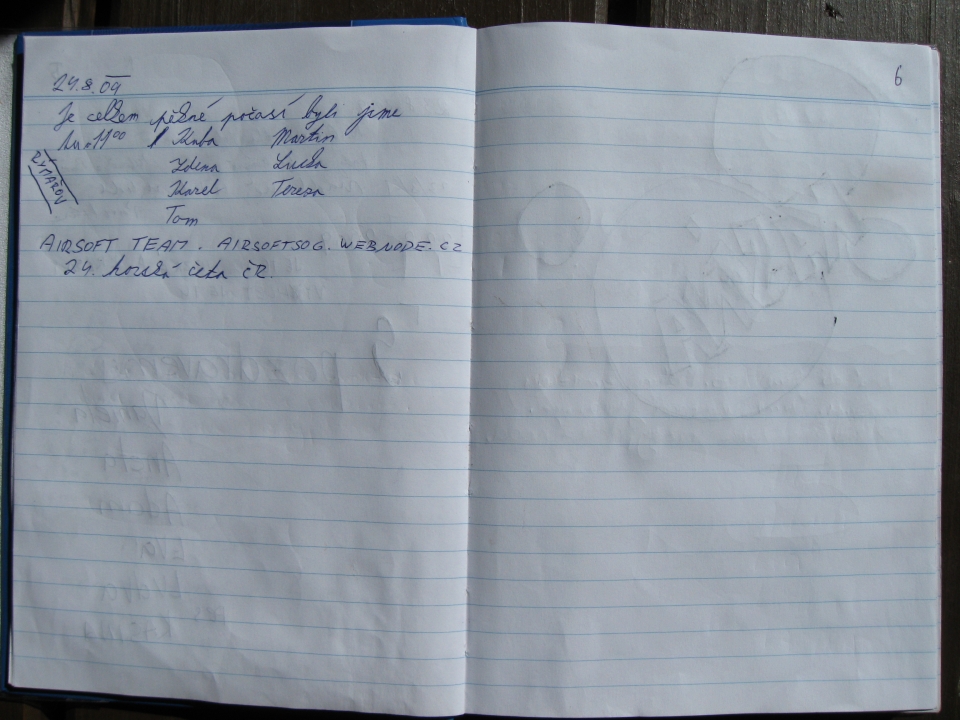 24.8.09
Je celkem pěkné počasí byli jsme
11⁰⁰ Kuba Martin
Zdena Lucka
RÝMAŘOV
Karel Tereza
Tom
AIRSOFT TEAM . AIRSOFTSOG . WEBNODE . CZ
24. horská četa ČR.
6